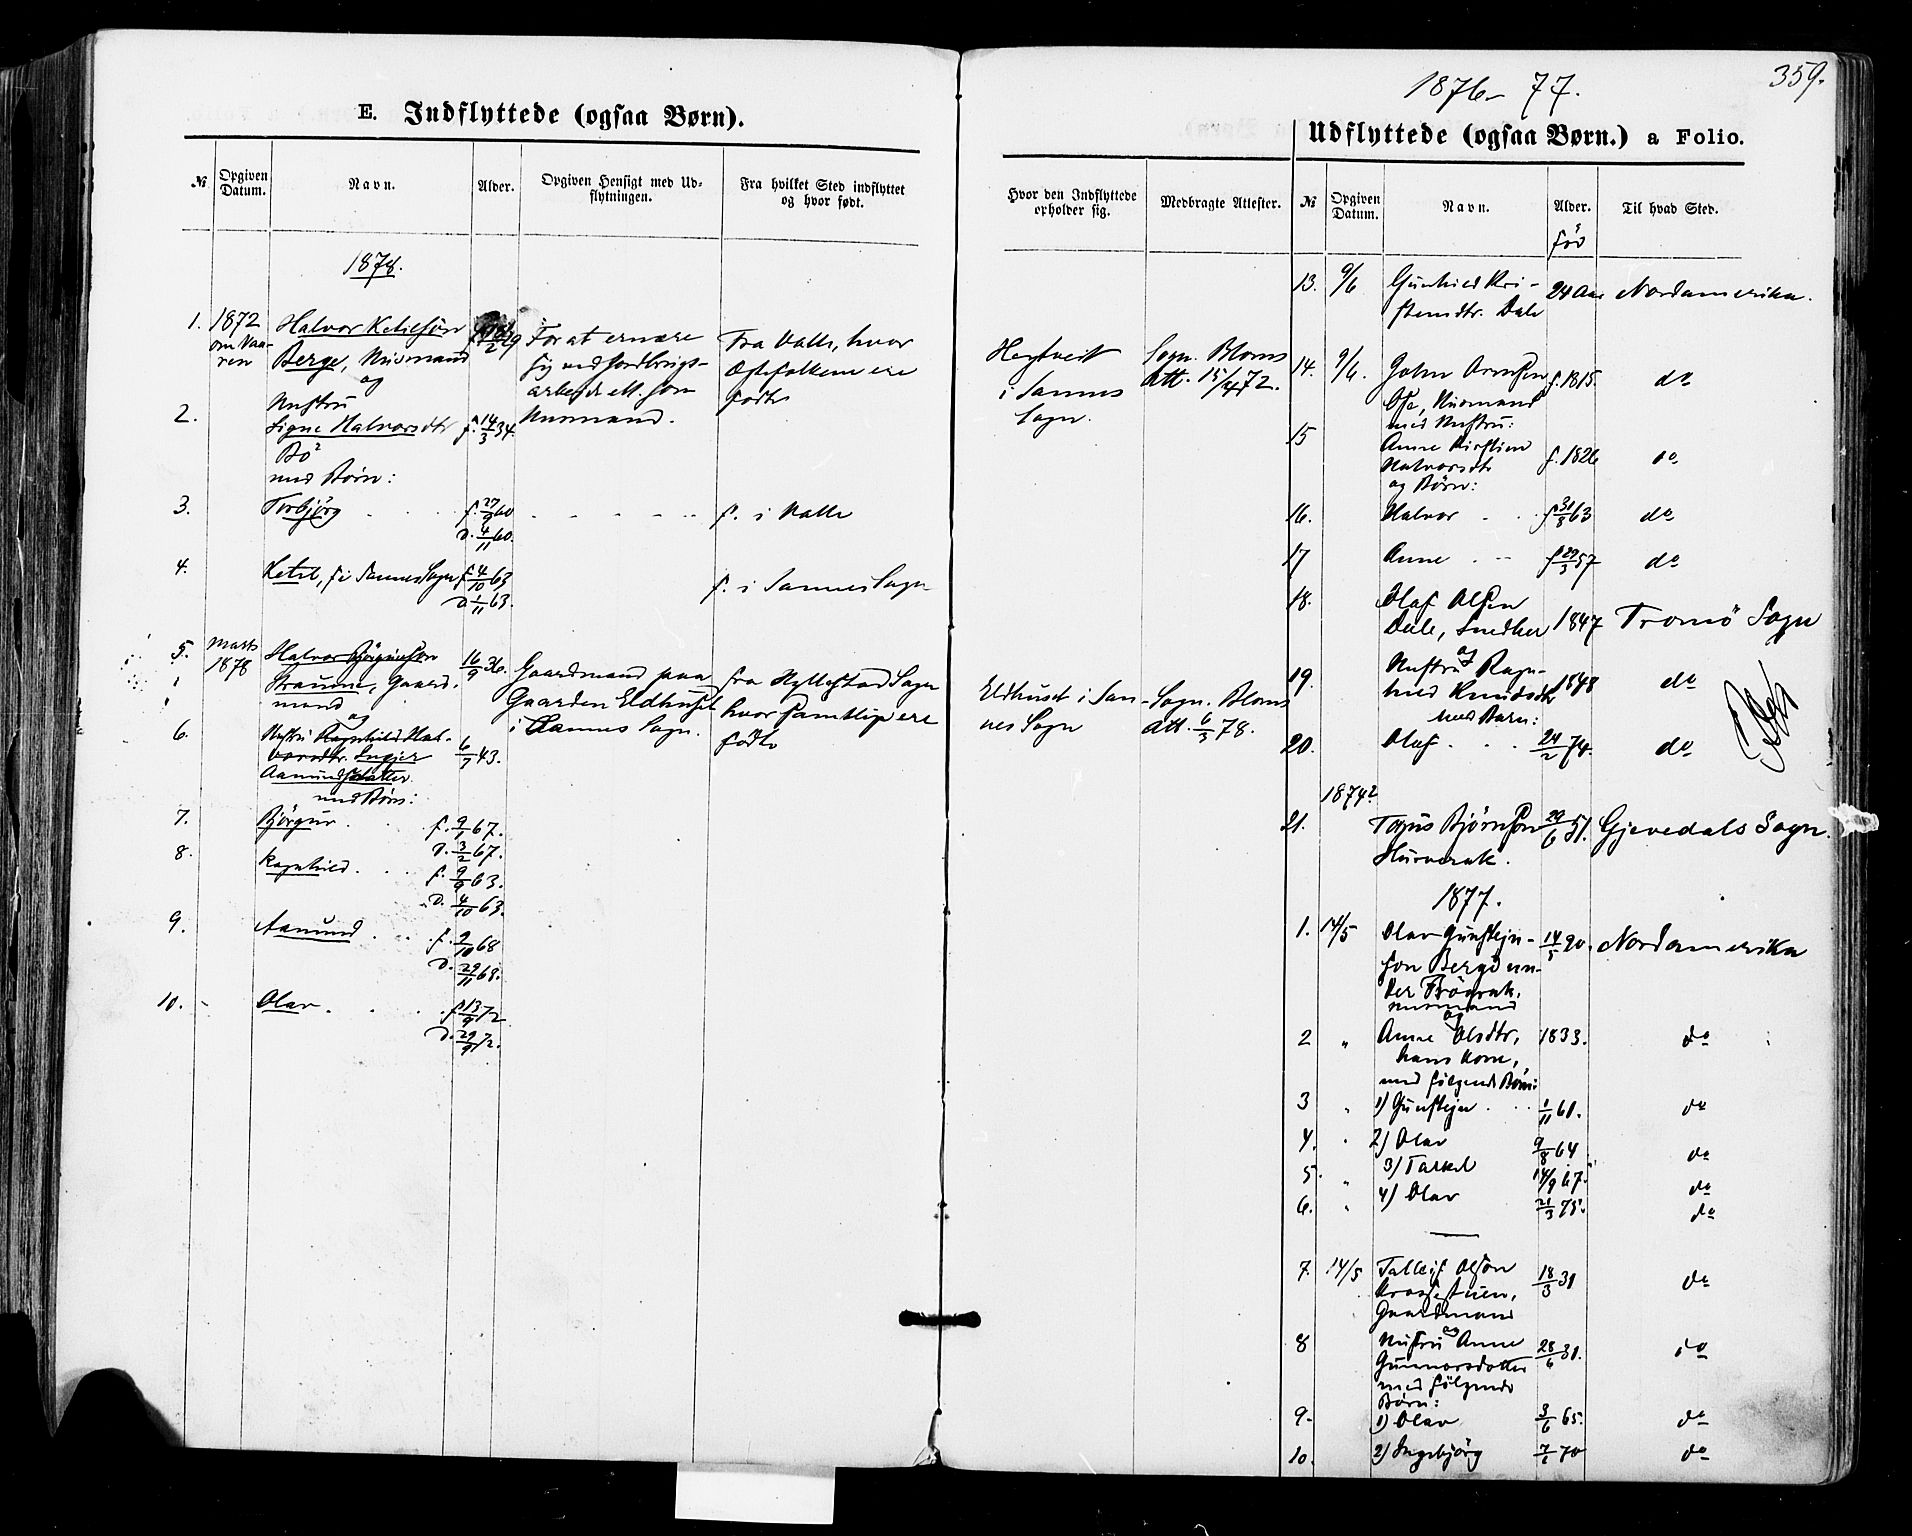 E. Indflyttede (ogsaa Børn).
№
Opgiven Datum.
Navn.
Alder.
Opgiven Hensigt med Ud-
flytningen.
Fra hvilket Sted indflyttet
og hvor født.
Hvor den Indflyttede
opholder sig.
Medbragte Attester.
1878.
1. 1872 Halvor Ketilsön
om Vaa-
ren
Berge, Husmand
og
For at ernære
sig ved Jordbrugs-
arbeide ell. som
Husmand.
Fra Valle, hvor
Ægtefolkene ere
födte
i Sannes
Sogn.
Sogn. Bloms
Att. 15/4 72.
2. Hustru
Signe Halvorsdtr f. 14/3 34.
Bö
med Börn:
3. Torbjörg f. 27/9 60 f. i Valle
D. 4/11 60.
4. Ketil, f. i Sannes Sogn f. 4/10 63 f. i Sannes Sogn
D. 1/11 63.
5. Marts
1878
Halvor Björgussön 16/9 36.
Straume, Gaard-
mand
og
Gaardmand paa
Gaarden Eldhuset
i Sannes Sogn.
fra Hyllestad Sogn
hvor samtlige ere
födte
Eldhuset i San-
nes Sogn
Sogn. Bloms
Att. 6/3 78.
6. Hustru Ragnhild Hal-
vorsdtr. Ingjer 43.
Aamundsdatter
med Börn:
7. Björgur f. 9/1 67.
D. 3/2 67.
8. Ragnhild f. 9/9 63.
D. 4/10 63.
9. Aamund f. 9/10 68
D. 29/11 68.
10. Olav f. 13/9 72
D. 29/9 72.
1876-77.
359.
Udflyttede (ogsaa Børn.) a Folio.
№
Opgiven Datum.
Navn.
Alder.
Til hvad Sted.
13. 9/6 Gunhild Kri-
stensdtr. Dale 24 Aar Nordamerika.
14. 9/6. John Arnesen f. 1815. do
Ose, Husmand
med Hustru:
15 Anne Kirstine
Halvorsdtr f. 1826 do
og Börn:
16. Halvor f. 31/8 63 do
17 Anne f. 29/3 57 do
18. Olaf Olsen
Dale, Snedker 1847 Tromö Sogn
19. og
Hustru Ragn-
hild Knudsdtr 1848 do
med Barn:
20. Olaf 24/2 74. do
1874?
21. Tarjus Björnson 29/6 51. Gjevedals Sogn.
1877.
1. 14/5 Olav Gunstejn-
son Berge un- Nordamerika
der
Husmand
og
2 „ Anne Olsdtr, 1833. do
hans Kone,
med fölgende Börn:
3 „ 1) Gunstejn 1/11 61. do
4. „ 2) Olav 9/8 64 do
5. „ 3) Tarkel 14/9 67. do
6. „ 4) Olav 21/3 75. do
7. 14/5 Tallejf Olsön 18/3 31 do
Gaardmand
8 og
Hustru Anne 28/6 31. do
Gunnarsdatter
med fölgende
Börn:
9. 1) Olav 3/6 65. do
10. 2) Ingebjörg 70 do